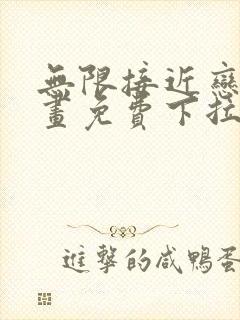 無限接近戀
畫免費下拉
進擊的咸鴨蛋